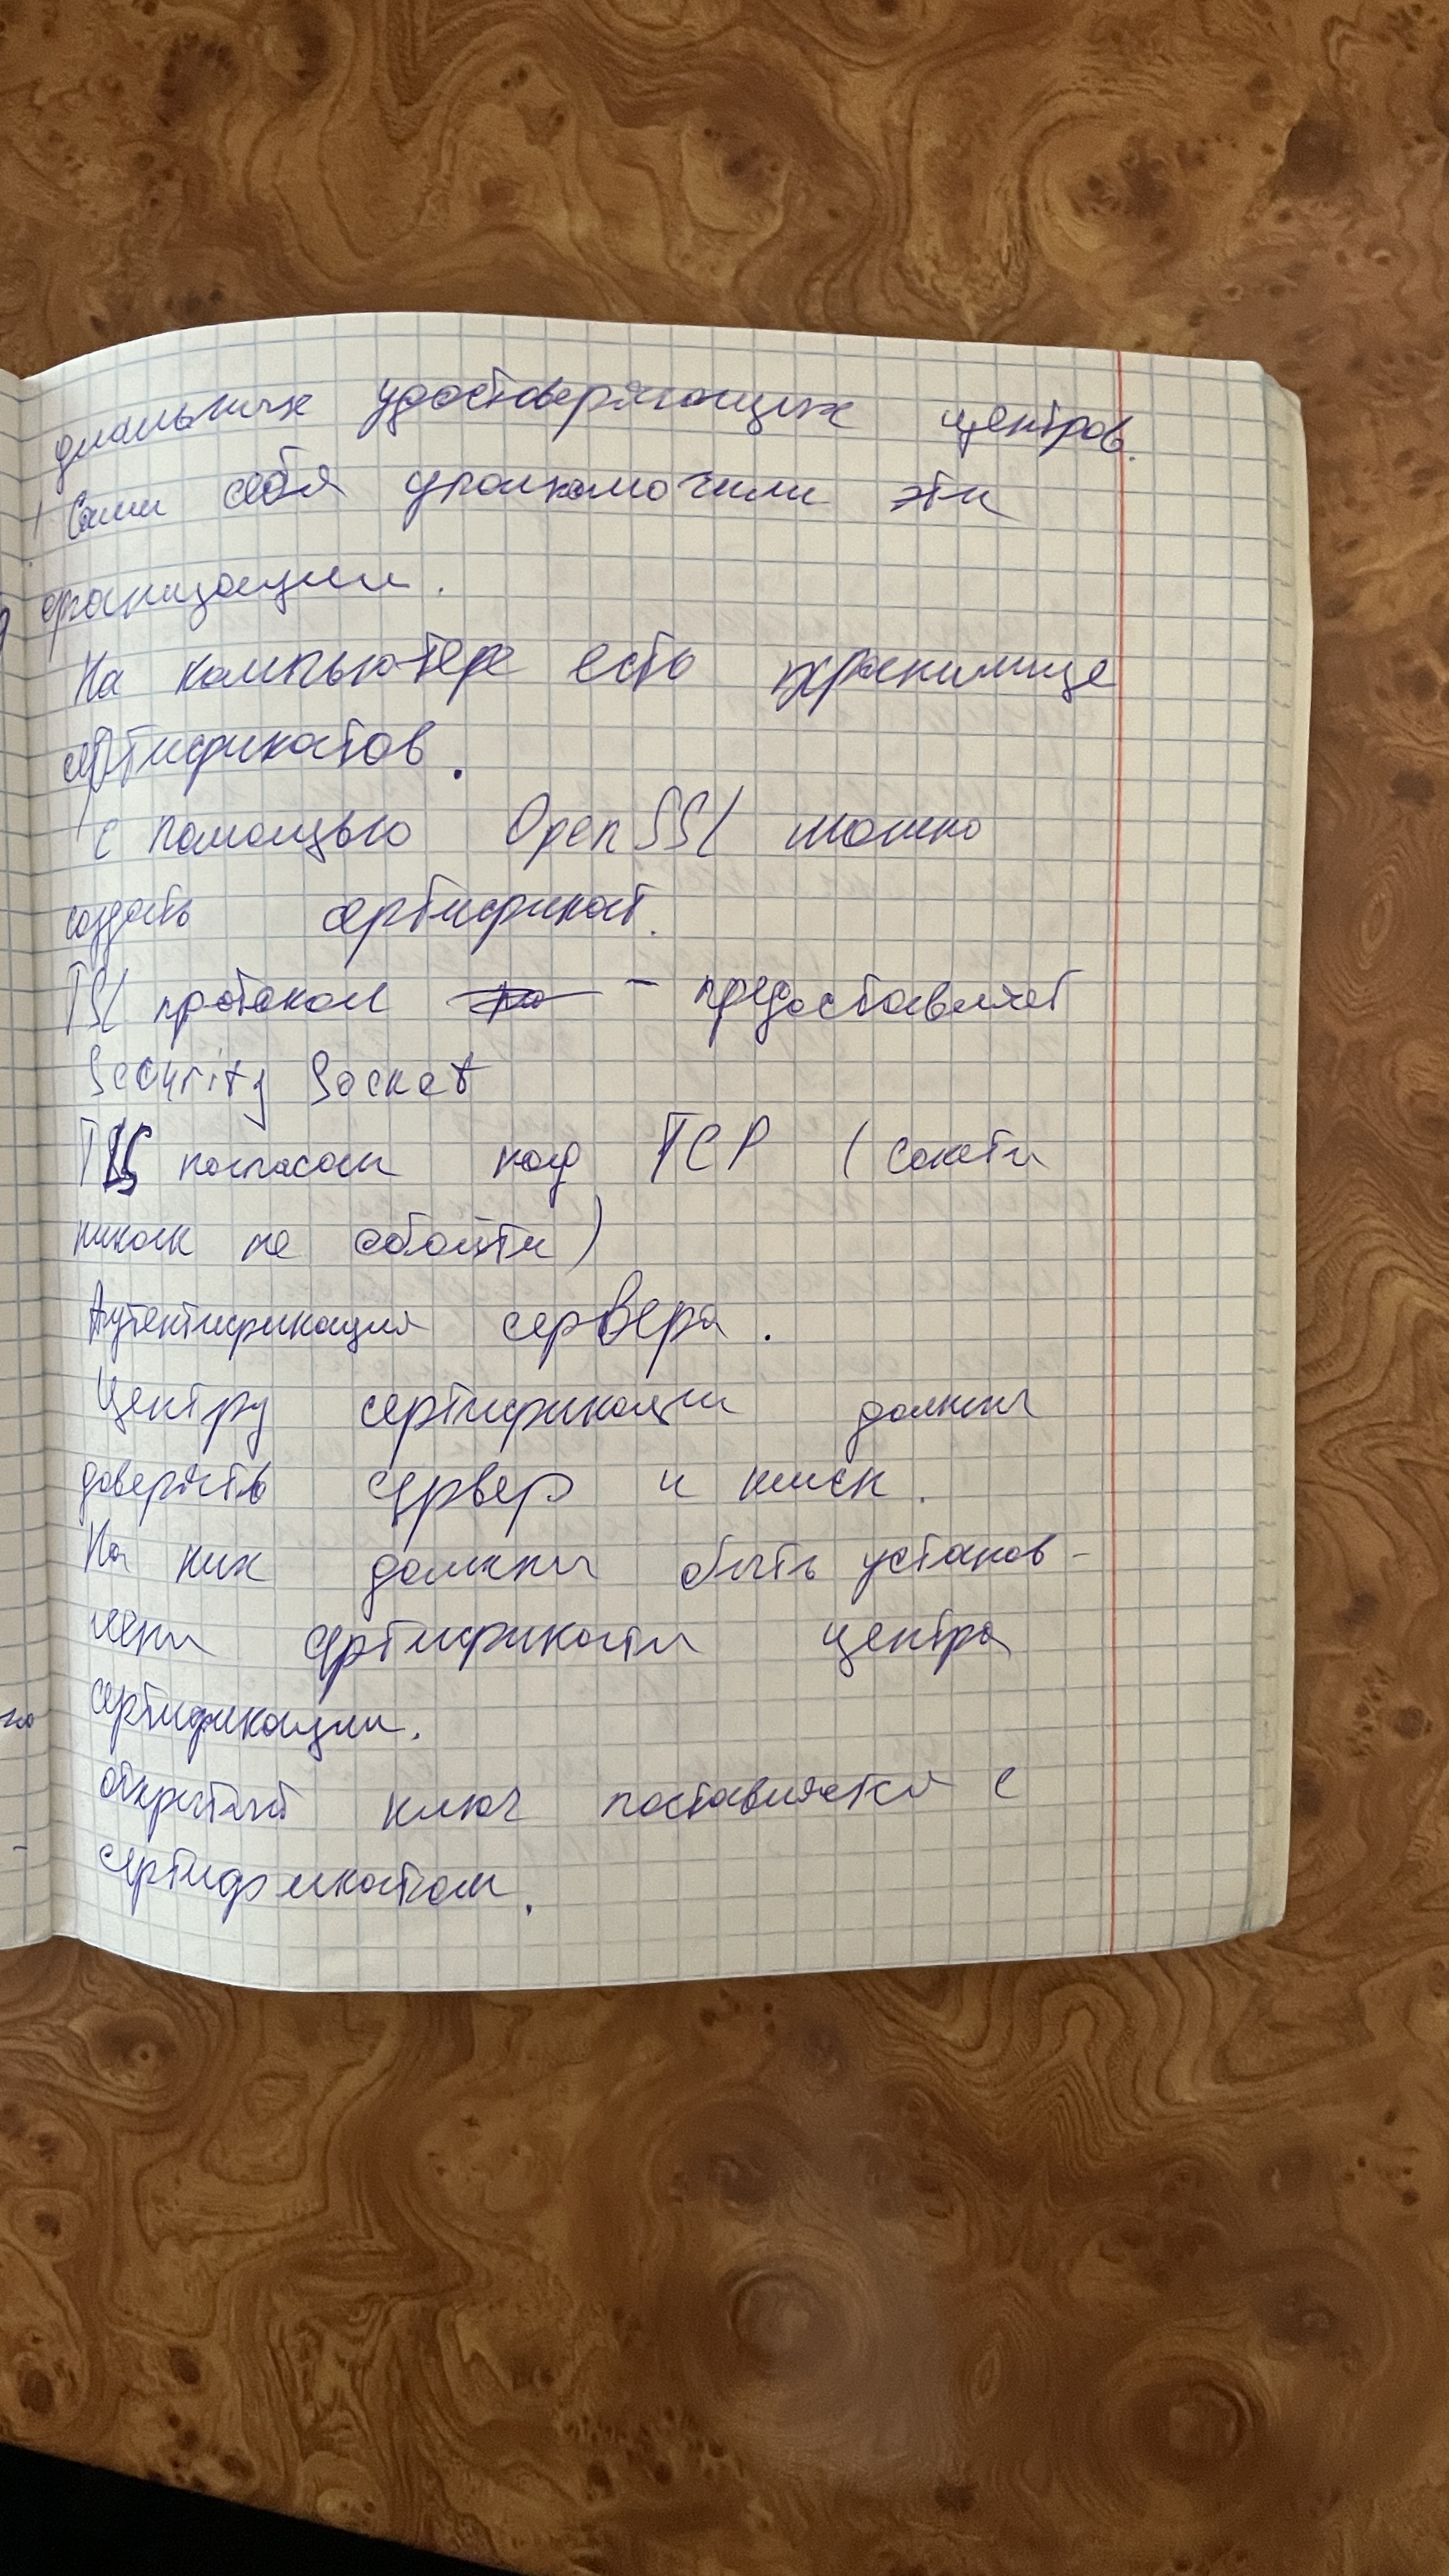 циальных удостоверяющих центров.
Сами себя уполномочили эти
организации.
На компьютере есть хранилище
сертификатов.
с помощью OpenSSL можно
создать сертификат.
TSL протокол - предоставляет
Security Socket
TLS согласован над TCP (сокеты
никак не обойти)
Аутентификация сервера.
Центру сертификации должны
доверять сервер и клиент.
На них должны быть установ-
лены сертификаты центра
сертификации.
открытый ключ поставляется с
сертификатом.